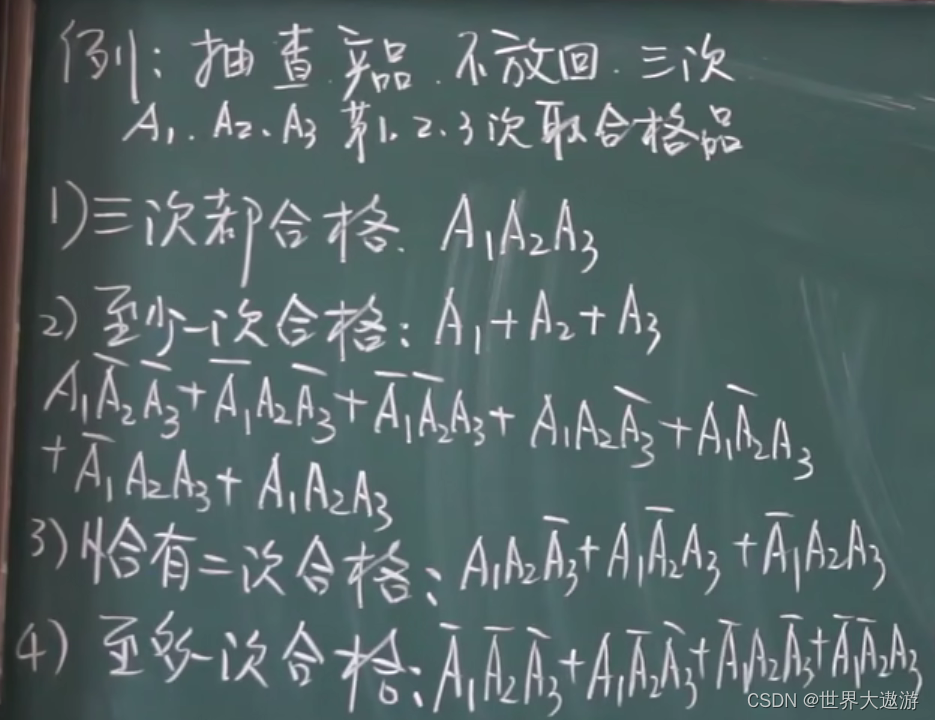 例:抽查产品.不放回.三次
A₁.A₂.A₃ 第1.2.3次取合格品
1)三次都合格. A₁A₂A₃
2)至少一次合格:A₁+A₂+A₃
A₁A̅₂A̅₃+A̅₁A₂A̅₃+A̅₁A̅₂A₃+A₁A₂A̅₃+A₁A̅₂A₃
+A̅₁A₂A₃+A₁A₂A₃
3)恰有二次合格:A₁A₂A̅₃+A₁A̅₂A₃+A̅₁A₂A₃
4)至多一次合格:A̅₁A̅₂A̅₃+A₁A̅₂A̅₃+A̅₁A₂A̅₃+A̅₁A̅₂A₃
CSDN @世界大遨游